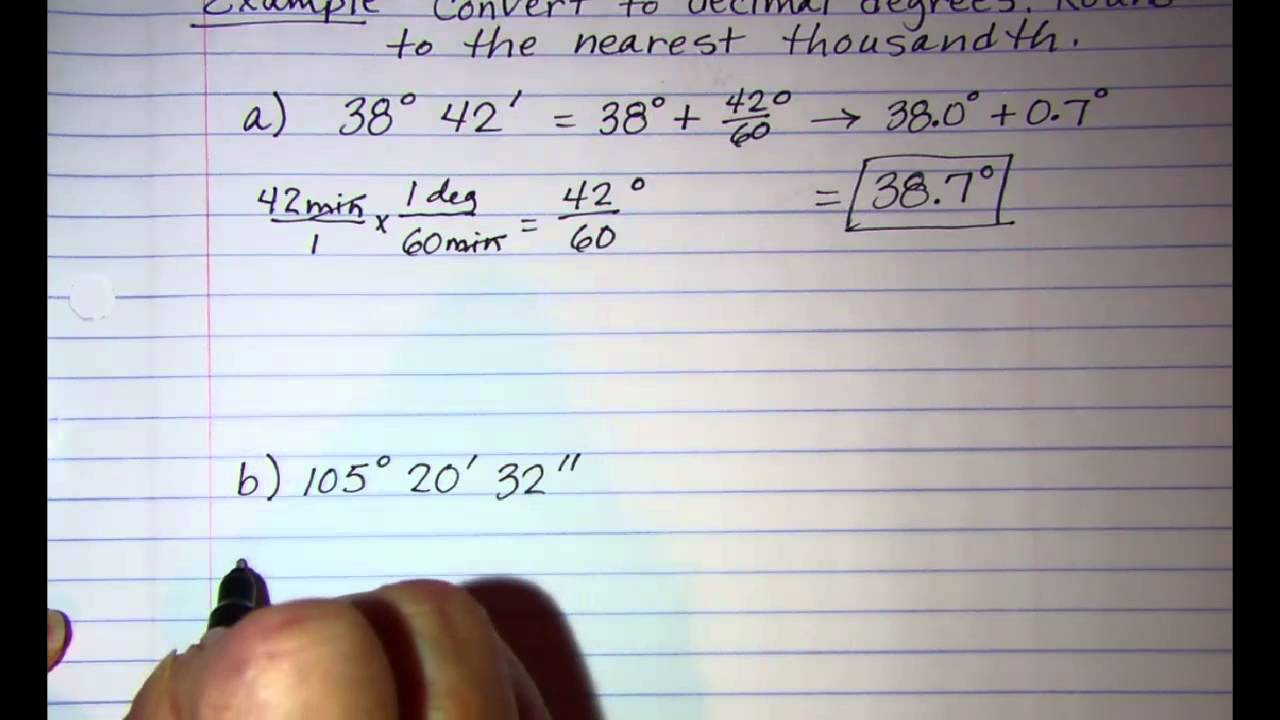 Example Convert to decimal degrees. Round
to the nearest thousandth.
a) 38° 42' = 38° + 42/60° → 38.0° + 0.7°
42 min/1 x 1 deg/60 min = 42/60° = 38.7°
b) 105° 20' 32"